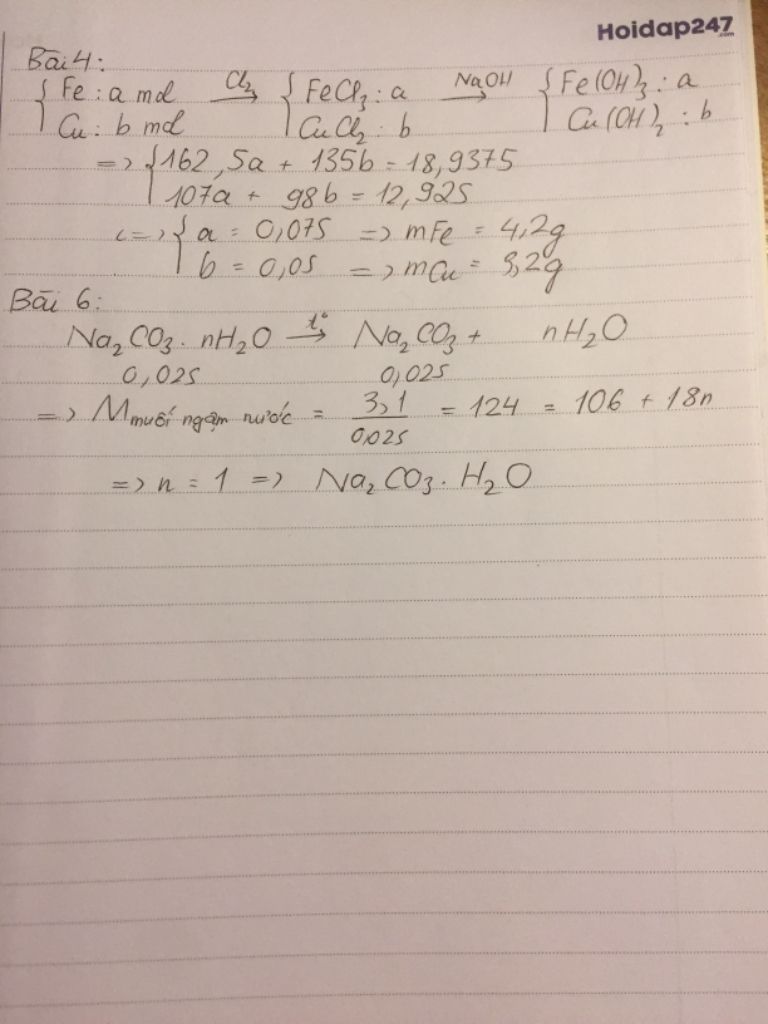 Hoidap247
.com
Bài 4:
{ Fe : a mol →(Cl₂) { FeCl₃ : a →(NaOH) { Fe(OH)₃ : a
Cu : b mol CuCl₂ : b Cu(OH)₂ : b
=> { 162,5a + 135b = 18,9375
107a + 98b = 12,925
<=> { a = 0,075 => mFe = 4,2g
b = 0,05 => mCu = 3,2g
Bài 6:
Na₂CO₃. nH₂O →(t°) Na₂CO₃ + nH₂O
0,025 0,025
=> M muối ngậm nước = 3,1 / 0,025 = 124 = 106 + 18n
=> n = 1 => Na₂CO₃. H₂O